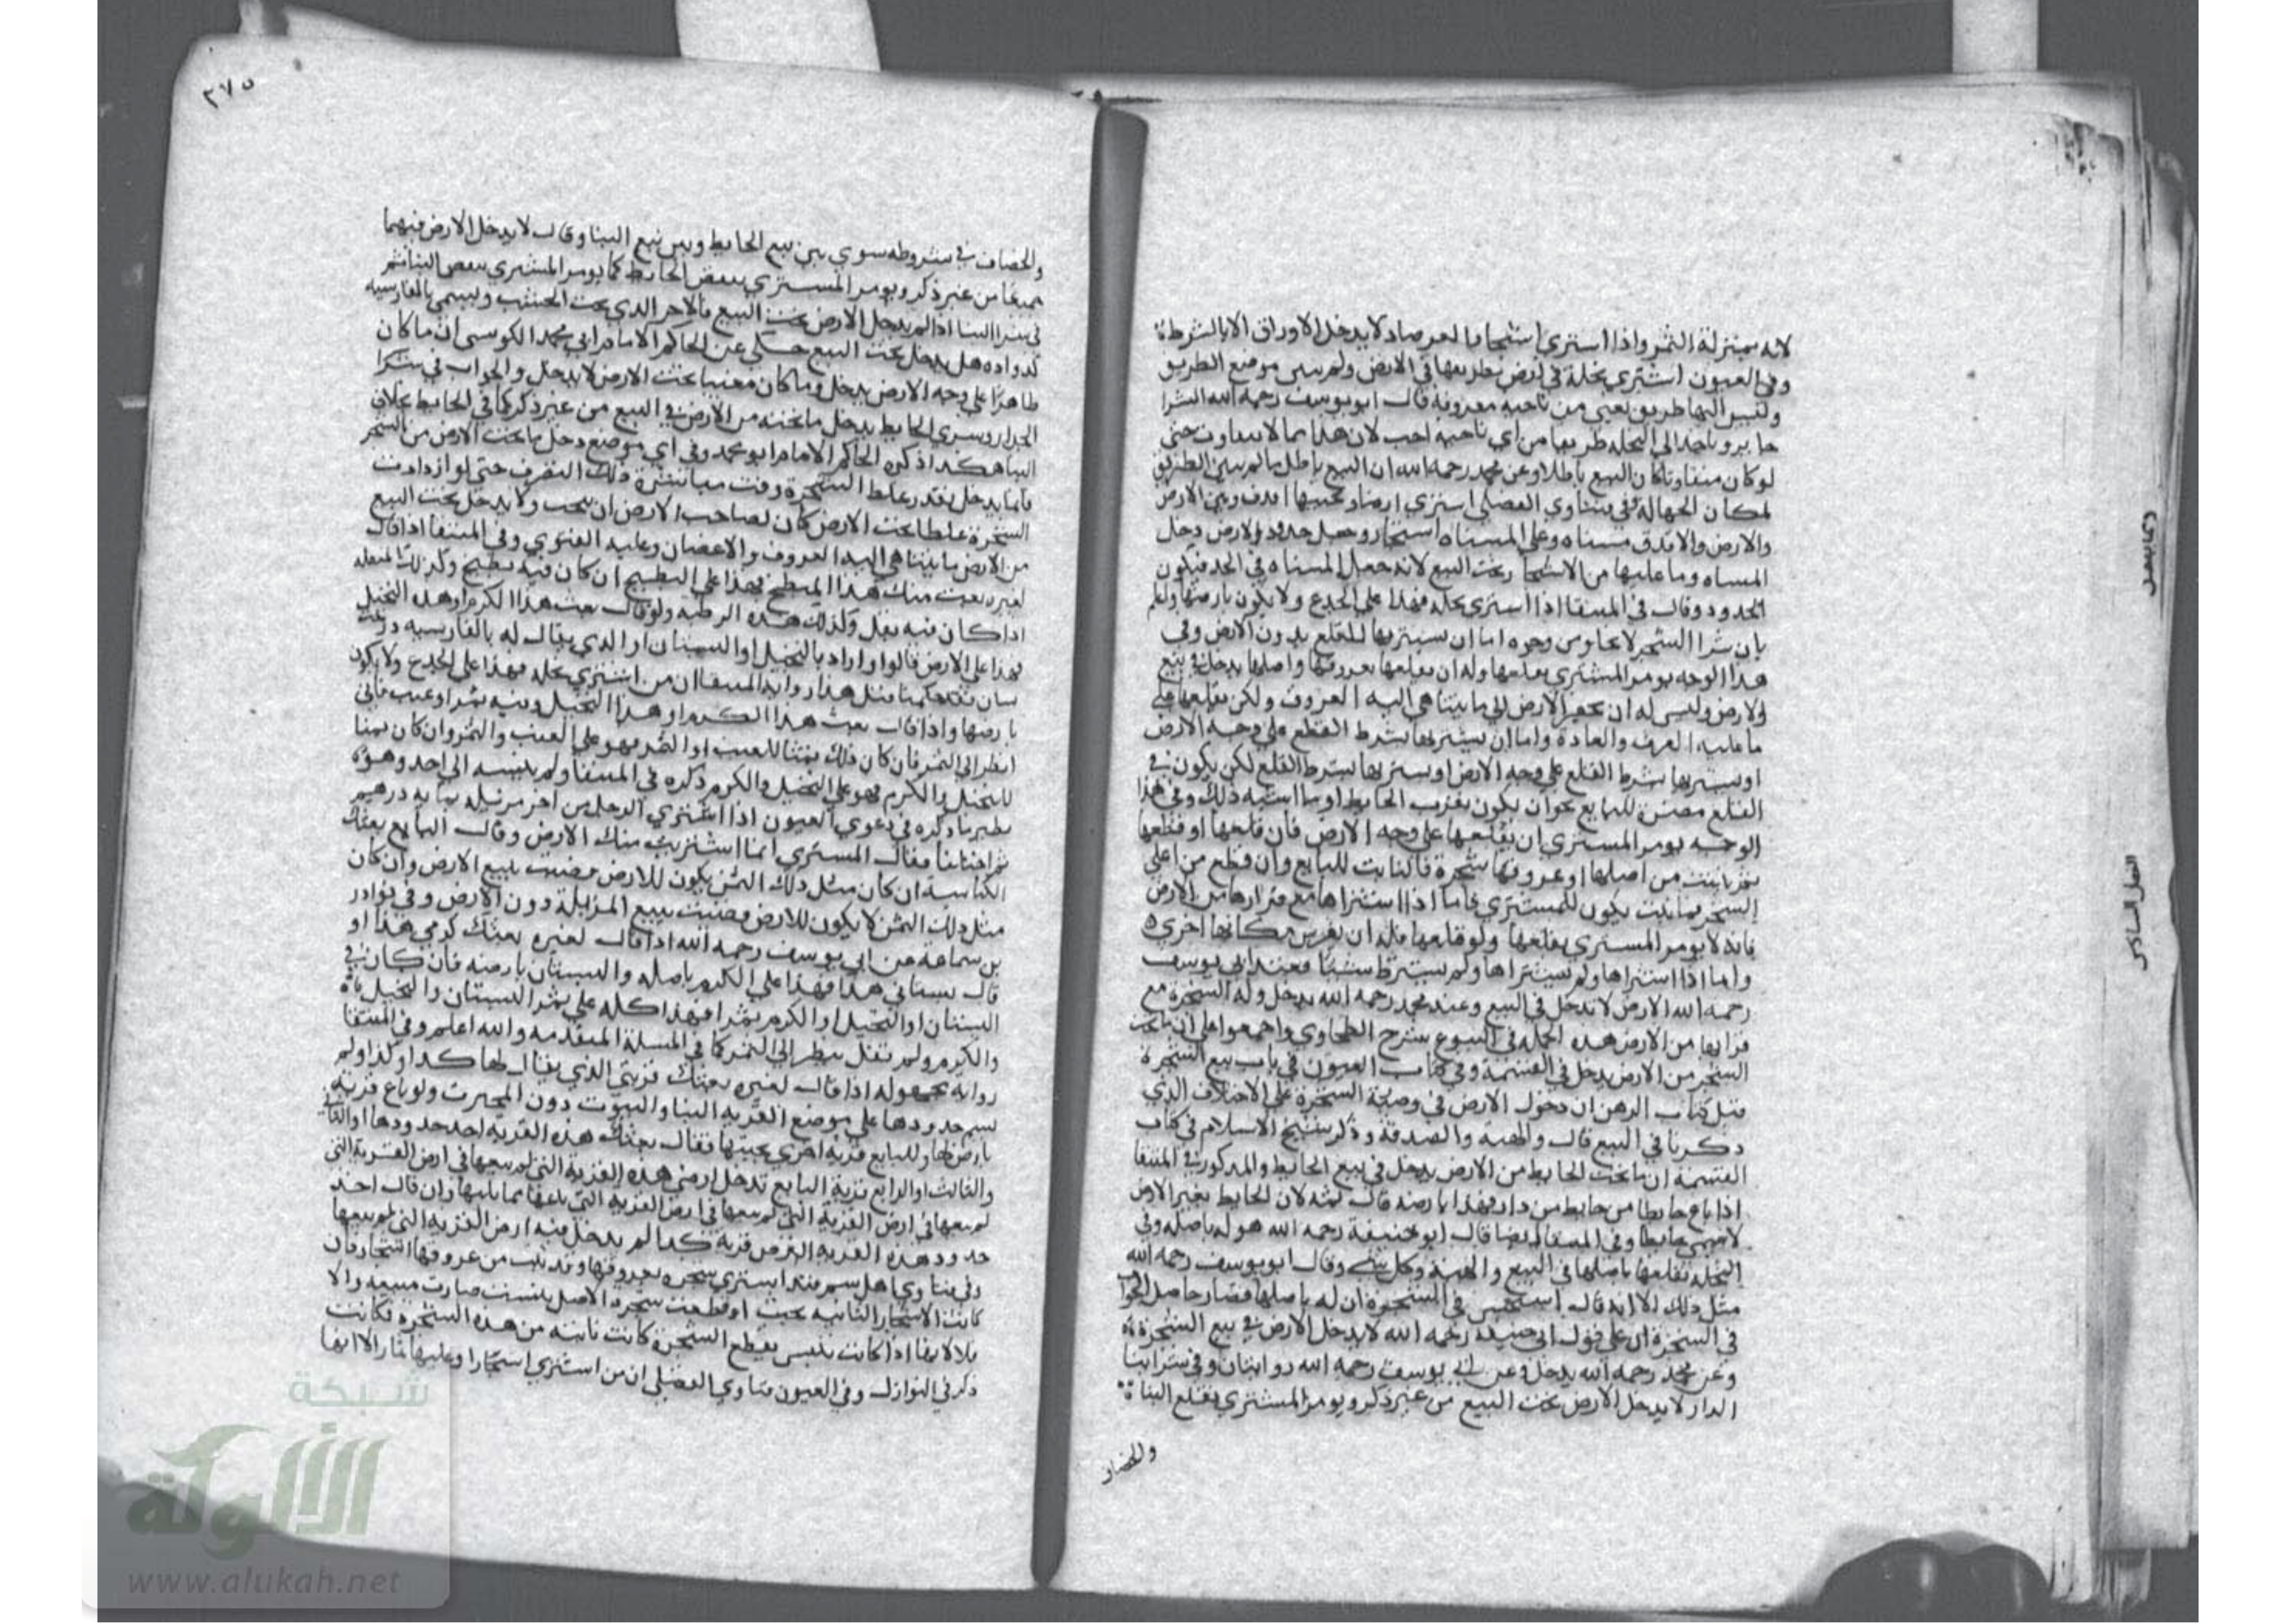 لانه بمنزلة الثمر واذا اشترى اشجارا لا يدخل الاوراق الا بالشرط
وفي العيون اشترى نخلة في ارض بطريقها في الارض ولم يبين موضع الطريق
وليس اليها طريق يعني من ناحية معروفة قال ابو يوسف رحمه الله الشرا
جايز وياخذ الى النخلة طريقا من اي ناحية احب لان هذا مما لا يتفاوت حتى
لو كان متفاوتا كان البيع باطلا وعن محمد رحمه الله ان البيع باطل ما لم يبين الطريق
لمكان الجهالة وفي فتاوي الفضلي اشترى ارضا وبجنبها افدق وبين الارض
والارض والافدق مسناه وعلى المسناه اشجار وجعل حدود الارض دخل
المسناه وما عليها من الاشجار تحت البيع لانه جعل المسناه في الحد فتكون
الحدود وقال في المنتقا اذا اشترى نخله فهذا على الجذع ولا يكون بارضها واعلم
بان شرا الشجر لا يخلو من وجوه اما ان يشتريها للقلع بدون الارض وفي
هذا الوجه يومر المشتري بقلعها وله ان يقلعها بعروقها واصلها يدخل في بيع
الارض وليس له ان يحفر الارض الى ما يتناهى اليه العروف ولكن يقلعها على
ما عليه العرف والعادة واما ان يشتريها بشرط القطع على وجه الارض
او يشتريها بشرط القلع على وجه الارض او يشتريها بشرط القلع لكن يكون في
القلع مضرة للبايع نحو ان يكون بقرب الحايط او ما اشبه ذلك وفي هذا
الوجه يومر المشتري ان يقلعها على وجه الارض فان قلعها او قطعها
ثم نبت من اصلها او عروقها شجرة فالنابت للبايع وان قطع من اعلى
الشجر فما نبت يكون للمشتري فاما اذا اشتراها مع قرارها من الارض
فانه لا يومر المشتري بقلعها ولو قلعها فله ان يغرس مكانها اخرى
واما اذا اشتراها ولم يشترط شيئا فعند ابي يوسف
رحمه الله الارض لا تدخل في البيع وعند محمد رحمه الله يدخل وله الشجرة مع
قرارها من الارض هذه الجملة في البيوع بشرح الطحاوي واجمعوا على ان ما تحت
الشجر من الارض يدخل في القسمة وفي كتاب العيون في باب بيع الشجرة
قبل كتاب الرهن ان دخول الارض في وصية الشجرة على الاختلاف الذي
ذكرنا في البيع قال والهبة والصدقة وذكر شيخ الاسلام في كتاب
القسمة ان ما تحت الحايط من الارض يدخل في بيع الحايط والمذكور في المنتقا
اذا باع حايطا من حايط من دار فهذا بارضه قال لان الحايط بغير الارض
لا يسمى حايطا وفي المنتقا ايضا قال ابو حنيفة رحمه الله هو له باصله وفي
النخله بقلعها باصلها في البيع والهبة وكل شي وقال ابو يوسف رحمه الله
مثل ذلك الا انه قال استحسن في الشجرة ان له باصلها فصار حاصل الجواب
في الشجرة ان على قول ابي حنيفة رحمه الله لا يدخل الارض في بيع الشجرة
وعن محمد رحمه الله يدخل وعن ابي يوسف رحمه الله روايتان وفي شرا بنا
الدار لا يدخل الارض تحت البيع من غير ذكر ويومر المشتري بقلع البنا
والخصاف
٣٧٥
والخصاف في شروطه سوى بين بيع الحايط وبين بيع البنا وقال لا يدخل الارض فيهما
جميعا من غير ذكر ويومر المشتري بنقض الحايط كما يومر المشتري بنقض البنا ثم
في شرا البنا اذا لم يدخل الارض تحت البيع فالاجر الذي تحت الخشب ويسمى بالفارسية
هل يدخل تحت البيع حكي عن الحاكم الامام ابي محمد الكوسي ان ما كان
ظاهرا على وجه الارض يدخل وما كان مغيبا تحت الارض لا يدخل والجواب في شرا
الجدار وشرى الحايط يدخل ما تحته من الارض في البيع من غير ذكر كما في الحايط بخلاف
البنا هكذا ذكره الحاكم الامام ابو محمد وفي اي موضع دخل ما تحت الارض من الشجر
فانما يدخل بقدر غلظ الشجرة وقت مباشرة ذلك التصرف حتى لو ازدادت
الشجرة غلظا تحت الارض كان لصاحب الارض ان ينحت ولا يدخل تحت البيع
من الارض ما يتناهى اليه العروف والاغصان وعليه الفتوي وفي المنتقا اذا قال
لغيره بعت منك هذا المبطخ فهذا على البطيخ ان كان فيه بطيخ وكذلك المبقله
اذا كان فيه بقل وكذلك هذه الرطبه ولو قال بعت هذا الكرم او هذه النخيل
فهذا على الارض قالوا واراد بالنخيل او البستان او الذي يقال له بالفارسيه
بارضها واذا قال بعت هذا الكرم او هذا النخيل وفيه ثمر او عنب فاني
انظر الى الثمن فان كان ذلك ثمنا للعنب او الثمر فهو على العنب والثمر وان كان ثمنا
للنخيل والكرم فهو على النخيل والكرم ذكره في المنتقا ولم ينسبه الى احد وهو
نظير ما ذكره في دعوي العيون اذا اشترى الرجل من اخر مزبله بماية درهم
ثم اختلفا فقال المشتري انما اشتريت منك الارض وقال البايع بعتك
الكناسة ان كان مثل ذلك الثمن يكون للارض قضيت ببيع الارض وان كان
مثل ذلك الثمن لا يكون للارض قضيت ببيع المزبلة دون الارض وفي نوادر
بن سماعة عن ابي يوسف رحمه الله اذا قال لغيره بعتك كرمي هذا او
قال بستاني هذا فهذا على الكرم باصله والبستان بارضه فان كان في
البستان او النخيل او الكرم ثمر فهذا كله على ثمر البستان والنخيل
والكرم ولم تقل ينظر الى الثمن كما في المسلة المتقدمه والله اعلم وفي المنتقا
رواية مجهولة اذا قال لغيره بعتك قريتي الذي يقال لها كذا وكذا ولم
يسم حدودها على موضع القرية البنا والبيوت دون الحرث ولو باع قرية
بارضها وللبايع قرية اخرى بجنبها فقال بعتك هذه القرية احد حدودها او الثاني
والثالث او الرابع قرية البايع تدخل ارض هذه القرية التي لم يبعها في ارض القرية التي
لم يبعها في ارض القرية التي لم يبعها في ارض القرية التي باعها مما يليها وان قال احد
حدود هذه القرية ارض قرية كذا لم يدخل فيه ارض القرية التي لم يبعها
وفي فتاوي اهل سمرقند اشترى شجره بعروقها وقد نبت من عروقها اشجار فان
كانت الاشجار الثانيه بحيث لو قطعت شجرة الاصل يبست صارت مبيعه والا
فلا لانها اذا كانت تيبس بقطع الشجرة كانت نابته من هذه الشجره فكانت
ذكر في النوازل وفي العيون فتاوي الفضلي ان من اشترى اشجارا وعليها ثمار
شبكة
الألوكة
www.alukah.net